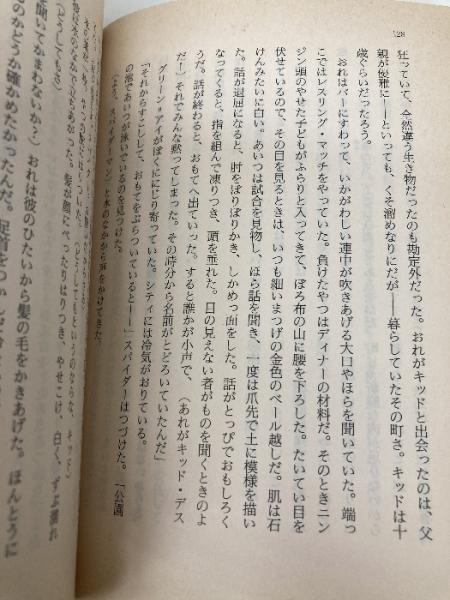 128
狂っていて、全然違う生き物だったのも勘定外だった。おれがキッドと出会ったのは、父
親が優雅に――といっても、くそ溜めなりにだが――暮らしていたその町さ。キッドは十
歳ぐらいだったろう。
おれはバーにすわって、いかがわしい連中が吹きあげる大口やほらを聞いていた。端っ
こではレスリング・マッチをやっていた。負けたやつはディナーの材料だ。そのときニン
ジン頭のやせた子どもがふらりと入ってきて、ぼろ布の山に腰を下ろした。たいてい目を
伏せているので、その目を見るときは、いつも細いまつげの金色のベール越しだ。肌は石
けんみたいに白い。あいつは試合を見物し、ほら話を聞き、一度は爪先で土に模様を描い
た。話が退屈になると、肘をぼりぼりかき、しかめっ面をした。話がとっぴでおもしろく
なってくると、指を組んで凍りつき、頭を垂れた。目の見えない者がものを聞くときのよ
うだ。話が終わると、おもてへ出ていった。すると誰かが小声で、（あれがキッド・デス
だ！）それでみんな黙ってしまった。その時分から名前がとどろいていたんだ」
グリーン・アイがぼくににじり寄っていた。シティには冷気がおりている。
「それからすこしして、おもてをぶらついていると――」スパイダーはつづけた。「公園
の池であいつが泳いでいるのを見つけた。
（よう、スパイダーマン）と水のなかから声をかけてきた。
髪が顔にべっとりはりつき、やせこけ、白く、ずぶ濡れ
を聞いてかまわないか）おれは彼のひたいから髪の毛をかきあげた。ほんとうに
のかどうか確かめたかったんだ。